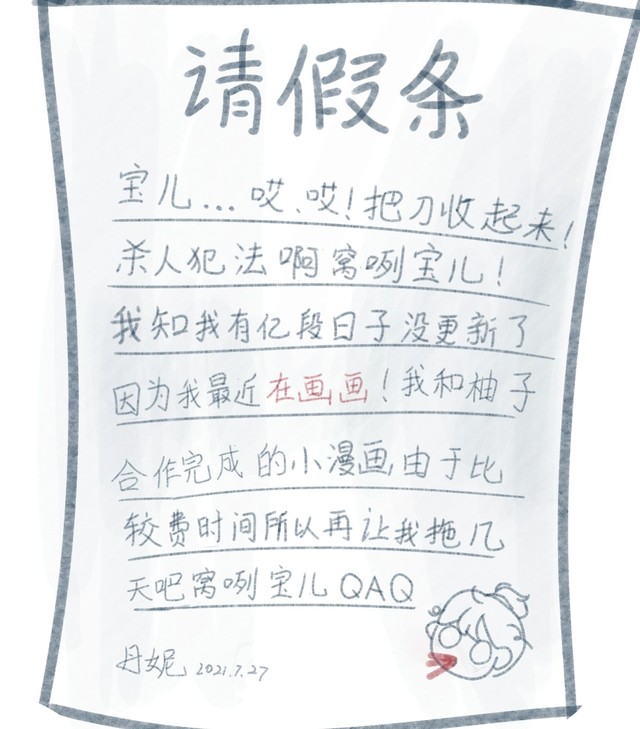 请假条
宝儿...哎、哎!把刀收起来!
杀人犯法啊窝咧宝儿!
我知我有亿段日子没更新了
因为我最近在画画!我和柚子
合作完成的小漫画,由于比
较费时间所以再让我拖几
天吧窝咧宝儿QAQ
丹妮 2021.7.27